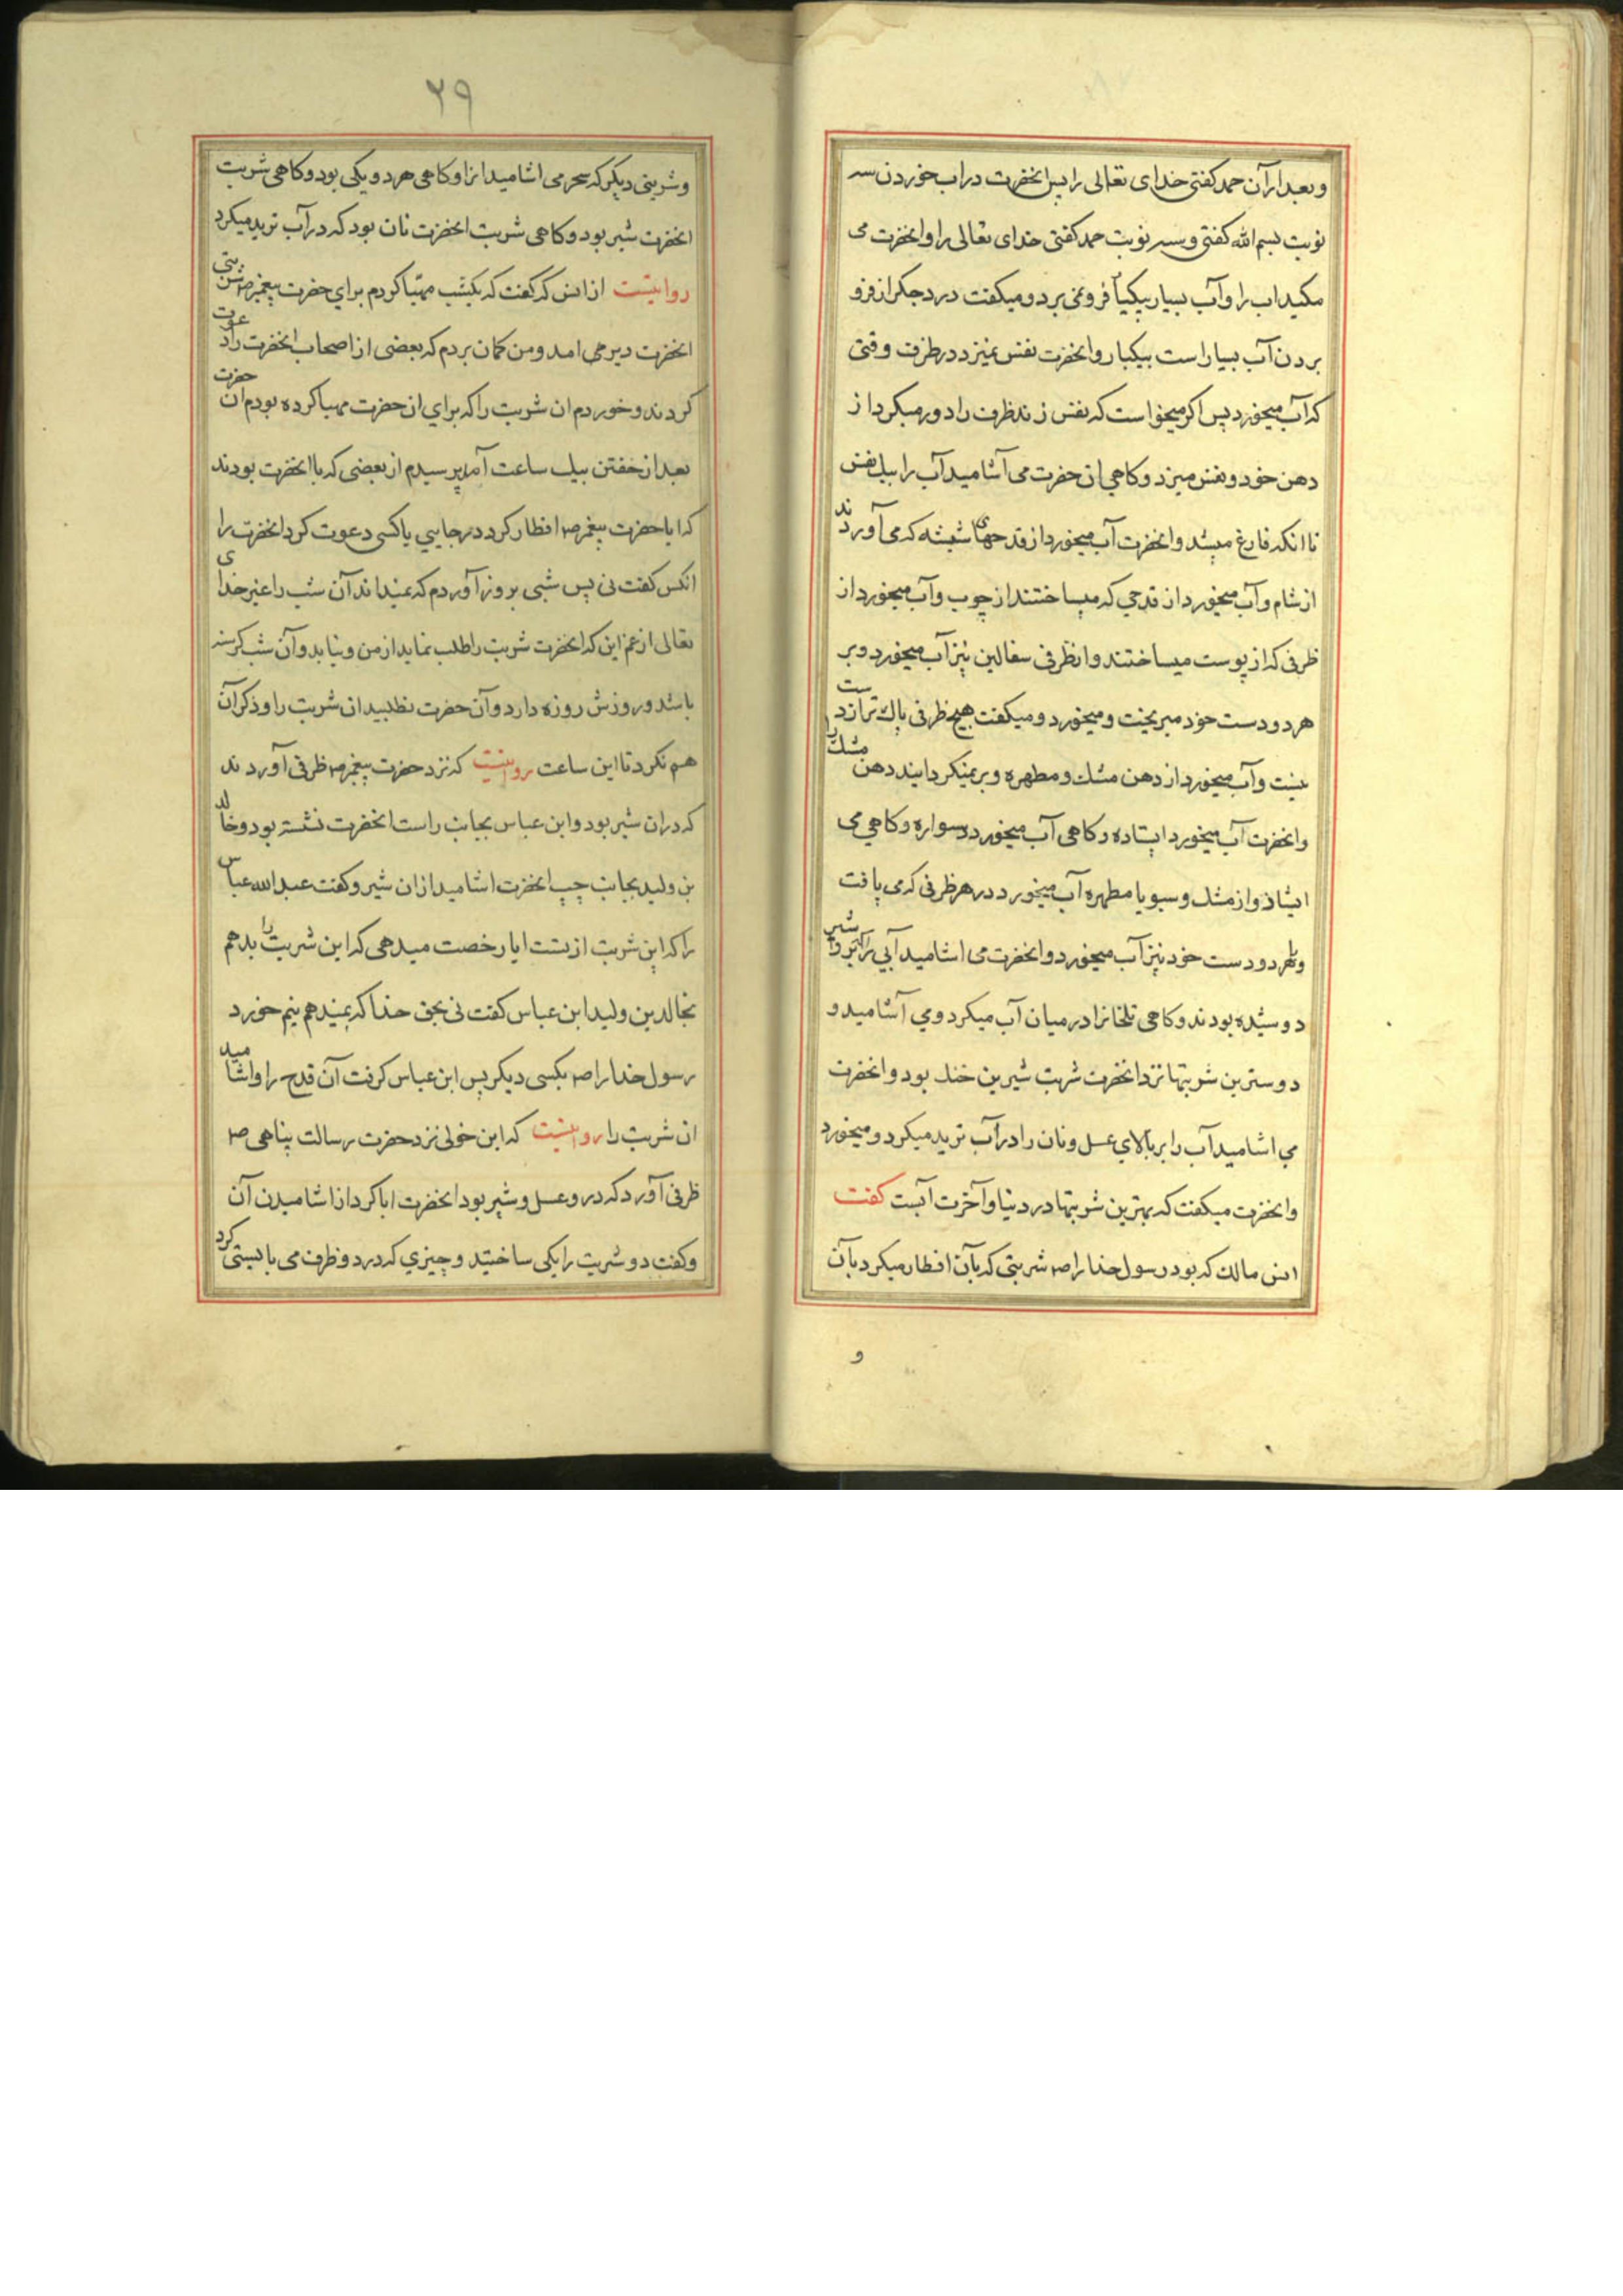 وبعد ازآن حمد كفتى خداى تعالى را پس انحضرت دراب خوردن سه
نوبت بسم الله كفتى وسه نوبت حمد كفتى خداى تعالى را وانحضرت مى
مكيد اب را وآب بسيار بيكبار فرو نمى برد و ميكفت درد جكر از فرو
بردن آب بسيار است بيكبار وانحضرت نفس نميزد در ظرف وقتى
كه آب ميخورد پس اكر ميخواست كه نفس زند ظرف را دور ميكرد از
دهن خود و نفس ميزد وكاهي ان حضرت مى آشاميد آب را بيك نفس
تا انكه فارغ ميشد وانحضرت آب ميخورد از قدحهاى شيشه كه مى آوردند
از شام وآب ميخورد از قدحي كه ميساختند از چوب وآب ميخورد از
ظرفى كه از پوست ميساختند وازظرفى سفالين نيز آب ميخورد وبر
هر دو دست خود ميريخت و ميخورد و ميكفت هيچ ظرفى پاك تر از دست
نيست وآب ميخورد از دهن مشك و مطهره وبر نميكردانيد دهن مشك را
وانحضرت آب ميخورد ايستاده وكاهى آب ميخورد در سواره وكاهي مى
ايستاد واز مشك وسبو يا مطهره آب ميخورد در هر ظرفى كه مى يافت
وبهر دو دست خود نيز آب ميخورد وانحضرت مى اشاميد آبي را كه برو شير
دوشيده بودند وكاهى تلخانرا در ميان آب ميكرد ومي آشاميد و
دوسترين شربتها نزد انحضرت شربت شيرين خنك بود وانحضرت
مي اشاميد آب را بر بالاي عسل ونان را درآب تريد ميكرد و ميخورد
وانحضرت ميكفت كه بهترين شربتها در دنيا وآخرت آبست كفت
انس مالك كه بود رسول خدا را صم شربتى كه بآن افطار ميكرد بآن
و
٢٩
وشربتى ديكر كه سحر مى اشاميد انرا وكاهى هر دو يكى بود وكاهى شربت
انحضرت شير بود وكاهى شربت انحضرت نان بود كه درآب تريد ميكرد
روايتست از انس كه كفت كه يكشب مهيا كردم براي حضرت پيغمبر صم شربتى
انحضرت دير مى امد ومن كمان بردم كه بعضى از اصحاب انحضرت را دعوت
كردند وخوردم ان شربت را كه براي ان حضرت مهيا كرده بودم ان حضرت
بعد از خفتن بيك ساعت آمد پرسيدم از بعضى كه با انحضرت بودند
كه ايا حضرت پيغمبر صم افطار كرد در جايي يا كسى دعوت كرد انحضرت را
انكس كفت نى پس شبى بروز آوردم كه نميداند آن شب را غير خداى
تعالى از غم اين كه انحضرت شربت را طلب نمايد از من ونيابد وآن شب كرسنه
باشد وروزش روزه دارد وآن حضرت نطلبيد ان شربت را وذكر آن
هم نكرد تا اين ساعت روايتست كه نزد حضرت پيغمبر صم ظرفى آوردند
كه دران شير بود وابن عباس بجانب راست انحضرت نشسته بود وخالد
بن وليد بجانب چپ انحضرت اشاميد ازان شير وكفت عبد الله عباس
را كه اين شربت از تست ايا رخصت ميدهى كه اين شربت را بدهم
بخالد بن وليد ابن عباس كفت نى بحق خدا كه نميدهم نيم خورد
رسول خدا را صم بكسى ديكر پس ابن عباس كرفت آن قدح را واشاميد
ان شربت را روايتست كه ابن خولى نزد حضرت رسالت پناهى صم
ظرفى آورد كه درو عسل وشير بود انحضرت ابا كرد از اشاميدن آن
وكفت دو شربت را يكى ساختيد وچيزي كه در دو ظرف مى بايستى كرد